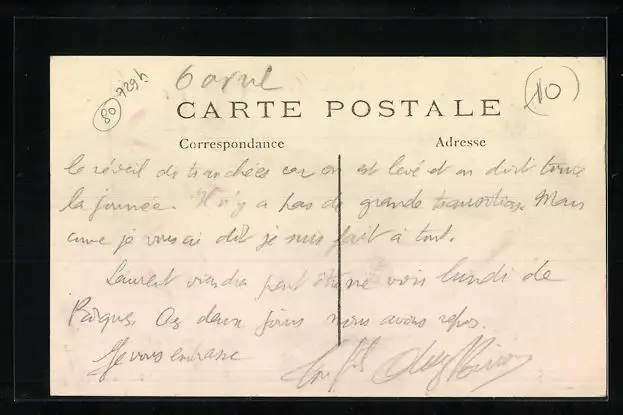 80 729h
6 avril
10
CARTE POSTALE
Correspondance
Adresse
le réveil de tranchées car on est levé et on dort toute
la journée. Il n'y a pas de grande transition. Mais
comme je vous ai dit je suis fait à tout.
Laurent viendra peut être me voir lundi de
Pâques. Ces deux jours nous avons repos.
Je vous embrasse